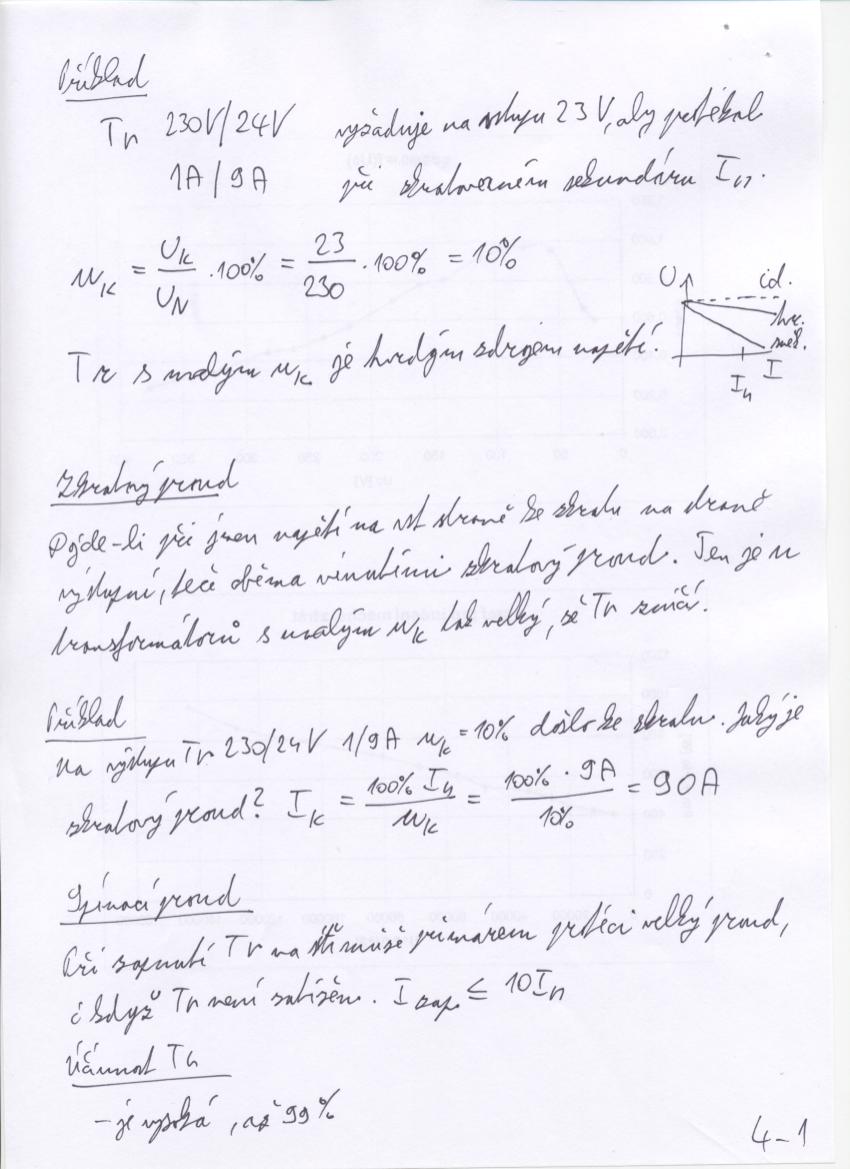 Příklad
Tr 230V/24V vyžaduje na vstupu 23 V, aby protékal
1A / 9A při zkratovaném sekundáru In.
uK = UK/UN · 100% = 23/230 · 100% = 10%
U id.
tvr.
měk.
In I
Tr s malým uK je tvrdým zdrojem napětí.
Zkratový proud
Dojde-li při jmen napětí na vst straně ke zkratu na straně
výstupní, teče oběma vinutími zkratový proud. Ten je u
transformátorů s malým uK tak velký, že Tr zničí.
Příklad
Na výstupu Tr 230/24V 1/9A uk = 10% došlo ke zkratu. Jaký je
zkratový proud? IK = 100% In / uK = 100% · 9A / 10% = 90A
Spínací proud
Při zapnutí Tr na síť může primárem protéci velký proud,
i když Tr není zatížen. Izap. ≤ 10In
Účinnost Tr
- je vysoká, až 99%
4-1